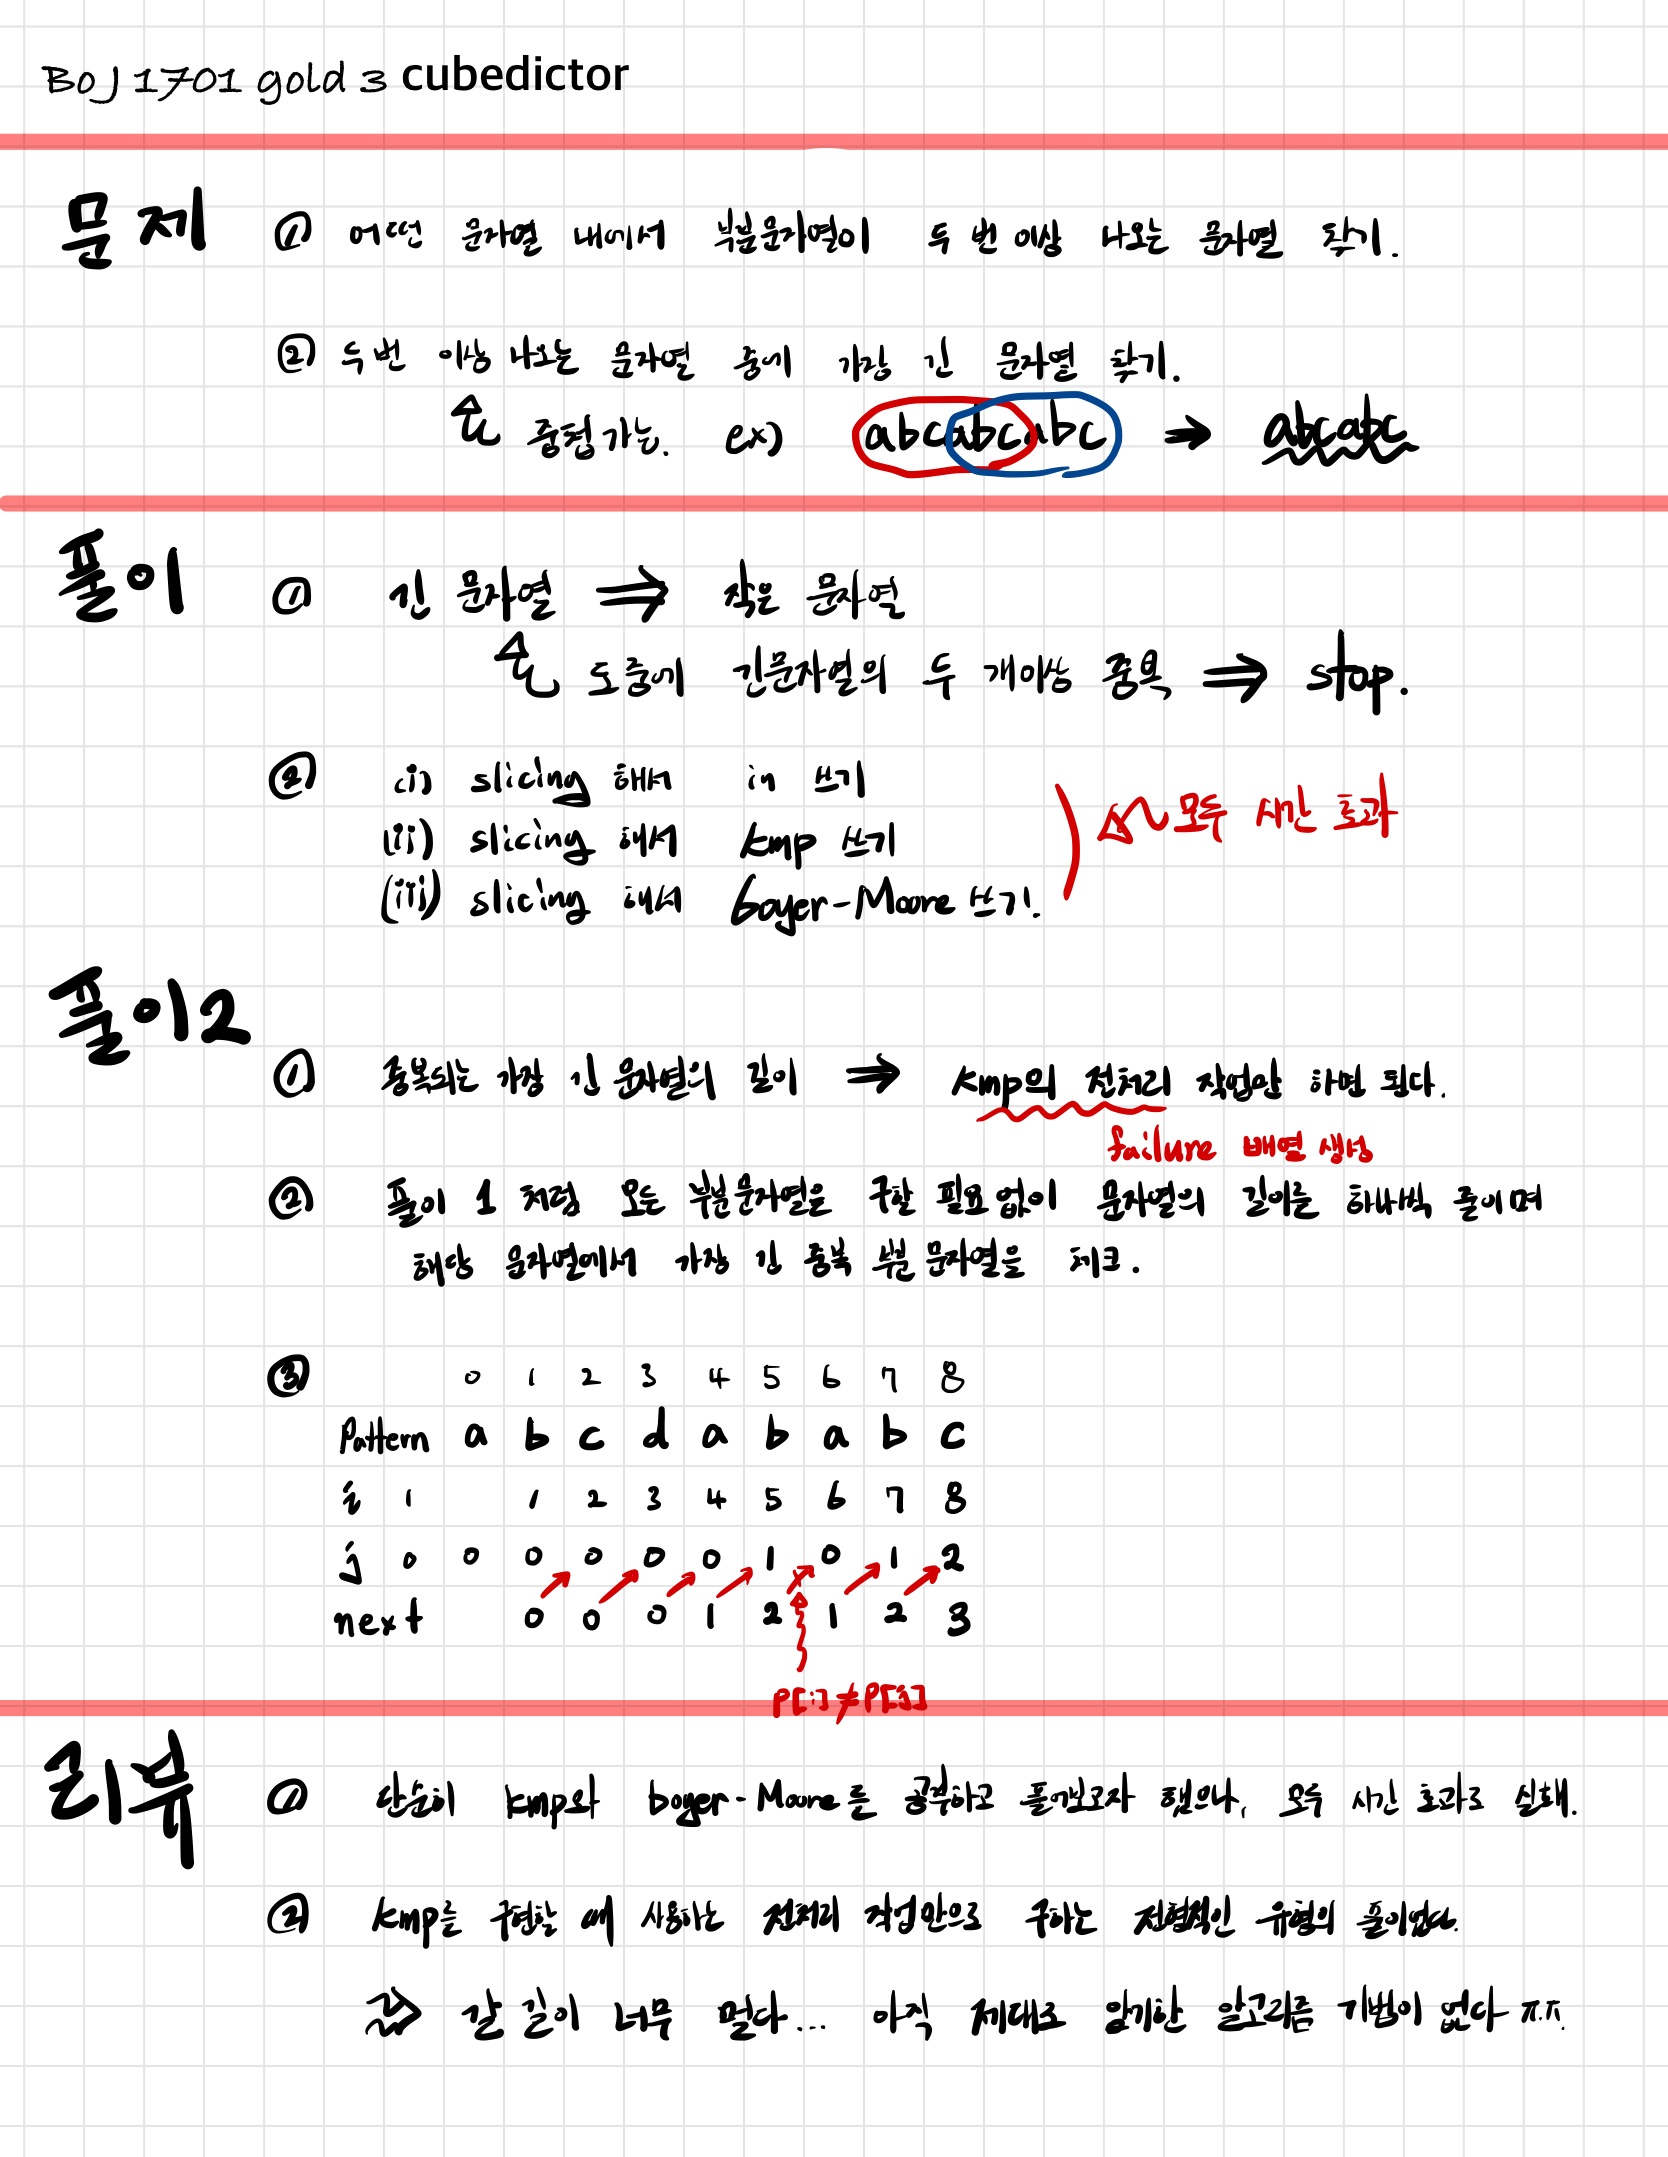 BOJ 1701 gold 3 cubedictor
문제 ① 어떤 문자열 내에서 부분문자열이 두 번 이상 나오는 문자열 찾기.
② 두번 이상 나오는 문자열 중에 가장 긴 문자열 찾기.
중첩 가능. ex) abcabcabc ⇒ abcabc
풀이 ① 긴 문자열 ⇒ 작은 문자열
도중에 긴문자열의 두 개이상 중복 ⇒ stop.
② (i) slicing 해서 in 쓰기
(ii) slicing 해서 kmp 쓰기
(iii) slicing 해서 boyer-Moore 쓰기.
모두 시간 초과
풀이2
① 중복되는 가장 긴 문자열의 길이 ⇒ kmp의 전처리 작업만 하면 된다.
failure 배열 생성
② 풀이 1 처럼 모든 부분문자열을 구할 필요없이 문자열의 길이를 하나씩 줄이며
해당 문자열에서 가장 긴 중복 부분문자열을 체크.
③ 0 1 2 3 4 5 6 7 8
Pattern a b c d a b a b c
i 1 1 2 3 4 5 6 7 8
j 0 0 0 0 0 0 1 0 1 2
next 0 0 0 1 2 1 2 3
P[i]≠P[j]
리뷰 ① 단순히 kmp와 boyer-Moore를 공부하고 풀어보고자 했으나, 모두 시간 초과로 실패.
② kmp를 구현할 때 사용하는 전처리 작업만으로 구하는 전형적인 유형의 풀이였다.
⇒ 갈 길이 너무 멀다... 아직 제대로 암기한 알고리즘 기법이 없다 ㅠ.ㅠ.